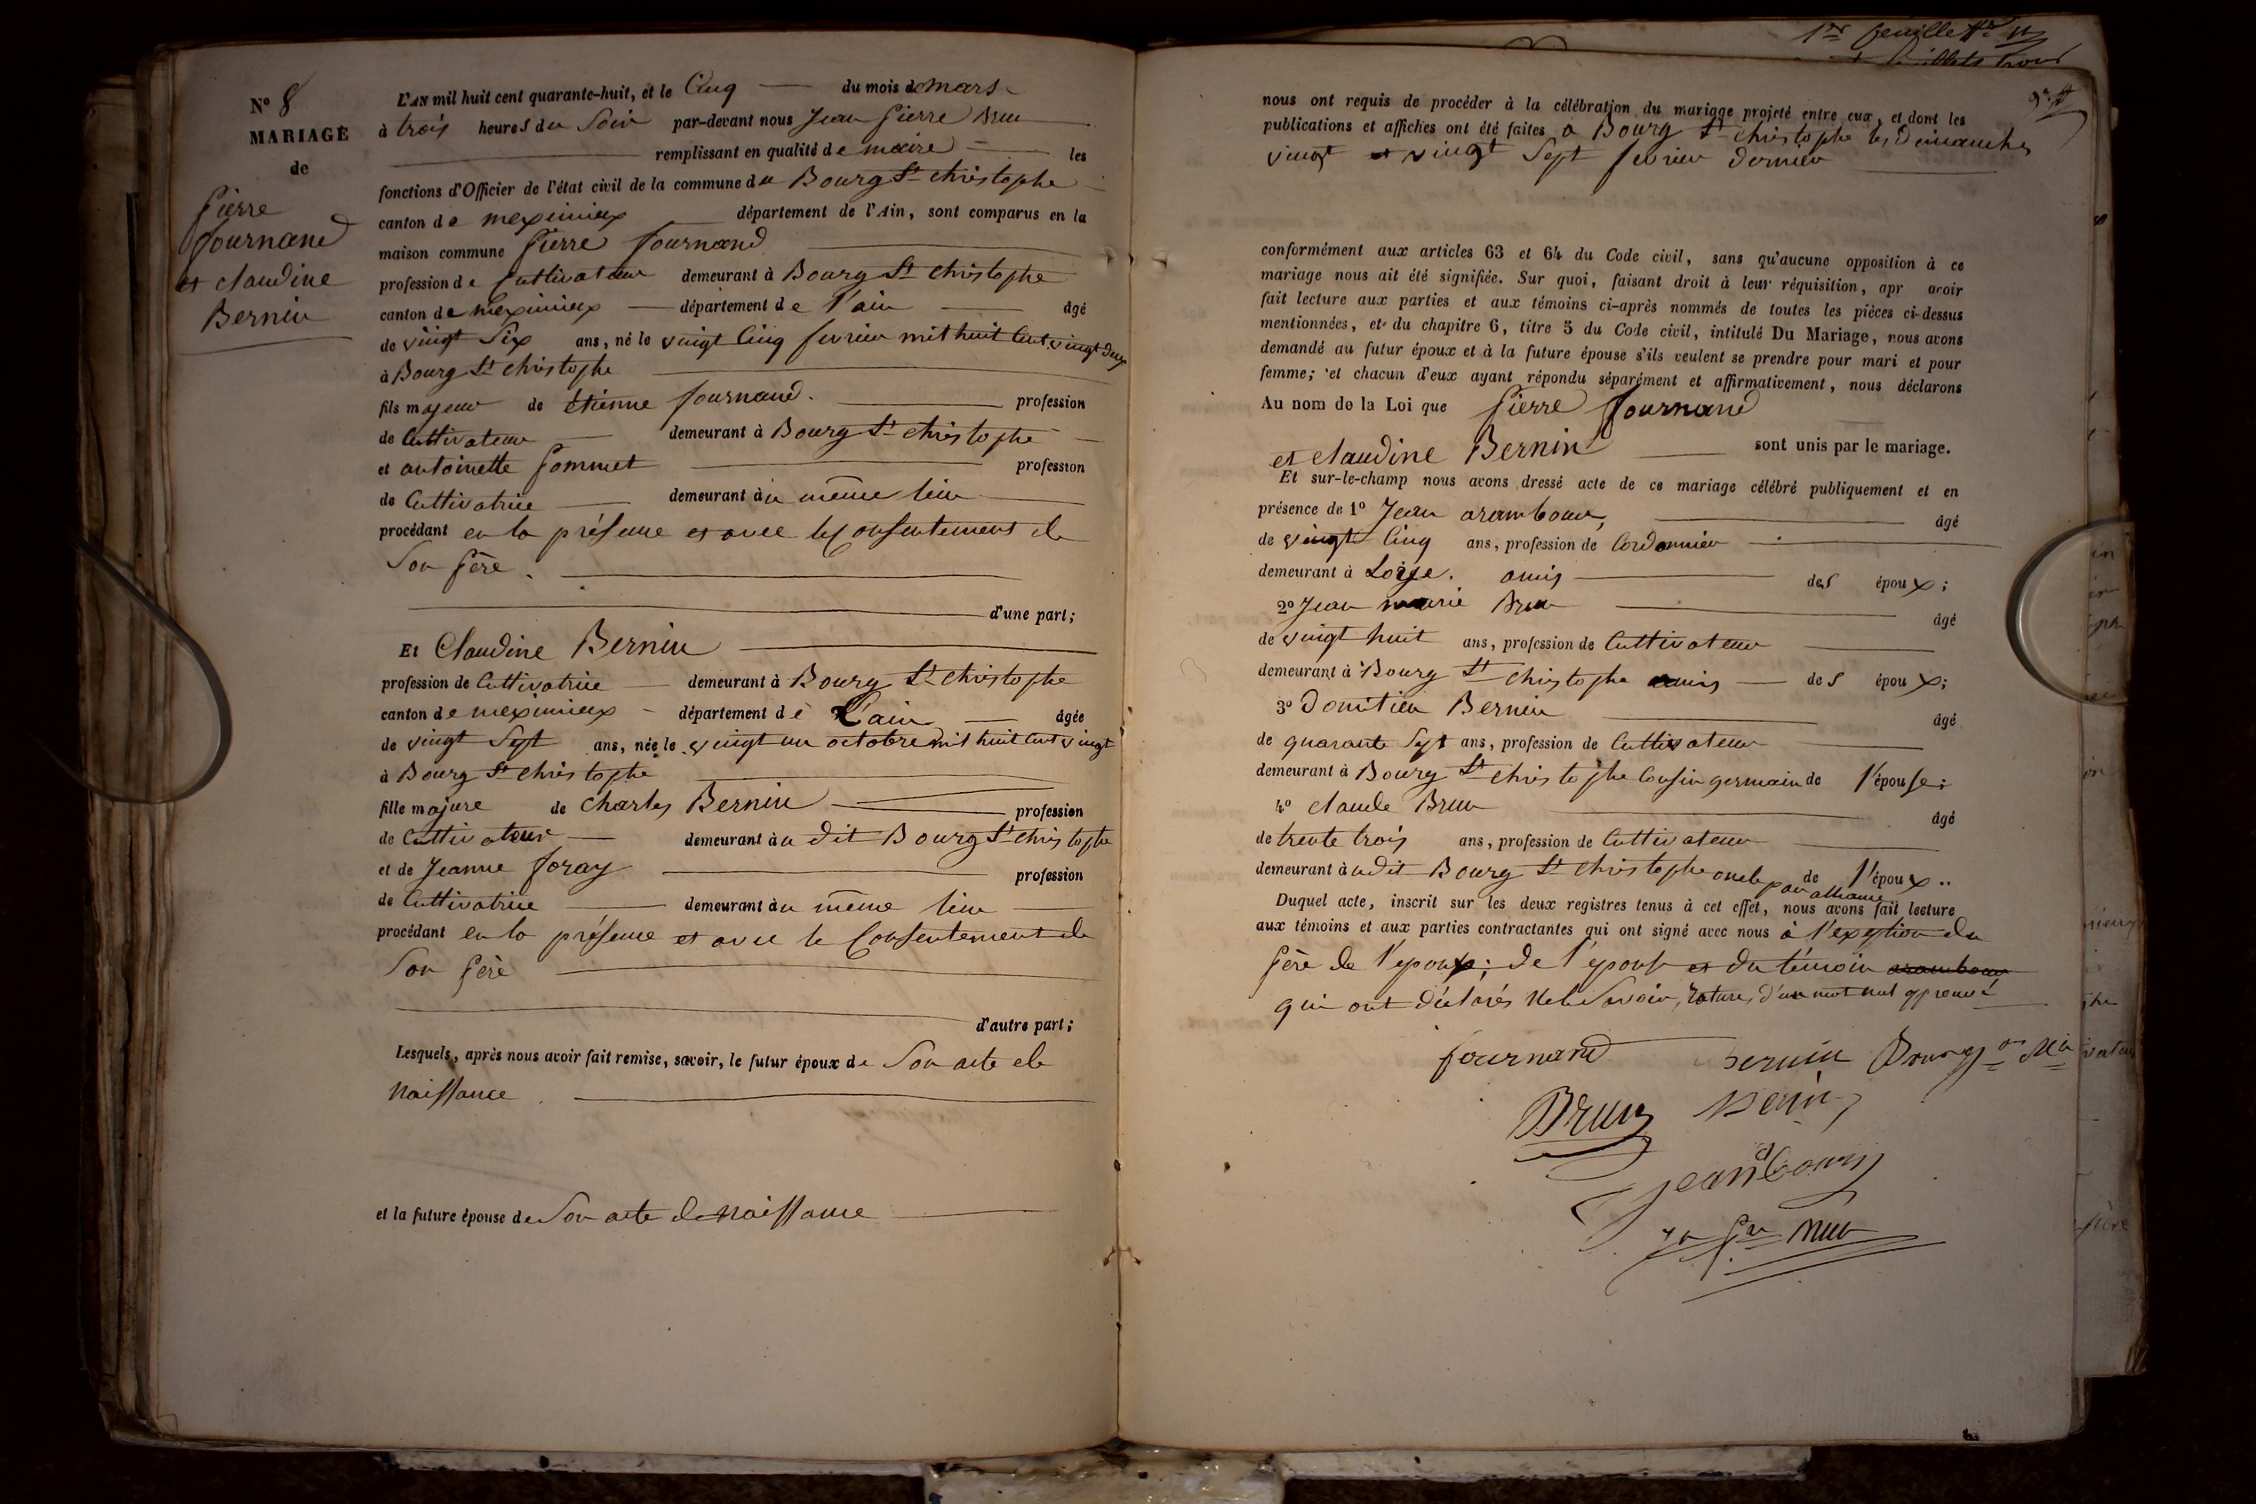 N° 8
MARIAGE
de
Pierre
fournand
et claudine
Bernin
L'AN mil huit cent quarante-huit, et le Cinq du mois de mars
à trois heures du Soir par-devant nous Jean Pierre Brun
remplissant en qualité de maire les
fonctions d'Officier de l'état civil de la commune du Bourg St christophe
canton de meximieux département de l'Ain, sont comparus en la
maison commune Pierre fournand
profession de Cultivateur demeurant à Bourg St christophe
canton de meximieux département de l'ain âgé
de vingt Six ans, né le vingt Cinq fevrier mil huit Cent vingt deux
à Bourg St christophe
fils majeur de étienne fournand. profession
de Cultivateur demeurant à Bourg St christophe
et antoinette Pommet profession
de Cultivatrice demeurant àu même lieu
procédant en la présence et avec le Consentement de
Son Père.
d'une part;
Et Claudine Bernin
profession de Cultivatrice demeurant à Bourg St christophe
canton de meximieux département de L'ain âgée
de vingt Sept ans, née le vingt un octobre mil huit Cent vingt
à Bourg St christophe
fille majure de charles Bernin profession
de Cultivateur demeurant àu dit Bourg St christophe
et de Jeanne foray profession
de Cultivatrice demeurant àu même lieu
procédant en la présence et avec le Consentement de
Son Père
d'autre part;
Lesquels, après nous avoir fait remise, savoir, le futur époux de Son acte de
Naissance.
et la future épouse de Son acte de Naissance
1re feuille
nous ont requis de procéder à la célébration du mariage projeté entre eux, et dont les
publications et affiches ont été faites à Bourg St christophe les dimanches
vingt et vingt Sept fevrier dernier
conformément aux articles 63 et 64 du Code civil, sans qu'aucune opposition à ce
mariage nous ait été signifiée. Sur quoi, faisant droit à leur réquisition, apr avoir
fait lecture aux parties et aux témoins ci-après nommés de toutes les pièces ci-dessus
mentionnées, et du chapitre 6, titre 5 du Code civil, intitulé Du Mariage, nous avons
demandé au futur époux et à la future épouse s'ils veulent se prendre pour mari et pour
femme; et chacun d'eux ayant répondu séparément et affirmativement, nous déclarons
Au nom de la Loi que Pierre fournand
et claudine Bernin sont unis par le mariage.
Et sur-le-champ nous avons dressé acte de ce mariage célébré publiquement et en
présence de 1° Jean arambour, âgé
de vingt Cinq ans, profession de Cordonnier
demeurant à Loÿe. amis des époux;
2° Jean marie Brun âgé
de vingt huit ans, profession de Cultivateur
demeurant à Bourg St christophe amis des époux;
3° Domitien Bernin âgé
de quarante Sept ans, profession de Cultivateur
demeurant à Bourg St christophe Cousin germain de l'épouse;
4° claude Brun âgé
de trente trois ans, profession de Cultivateur
demeurant àudit Bourg St christophe oncle par alliance de l'époux..
Duquel acte, inscrit sur les deux registres tenus à cet effet, nous avons fait lecture
aux témoins et aux parties contractantes qui ont signé avec nous à l'exeption du
Père de l'époux; de l'épouse et du témoin arambour
qui ont déclarés Ne le Savoir, rature d'un mot nul approuvé
fournand Bernin Brun
Brun Bernin